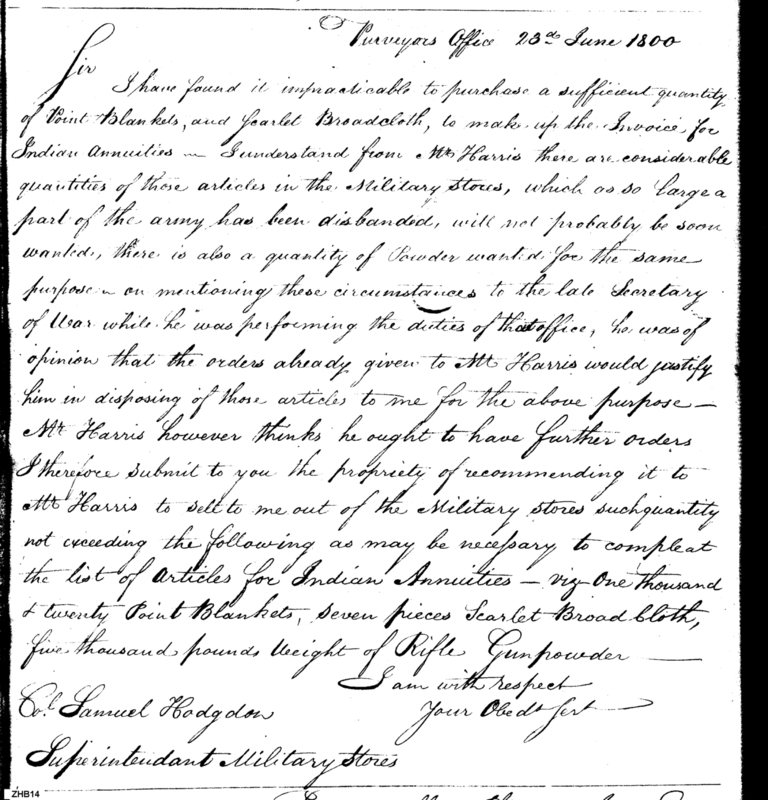 Purveyors Office 23rd June 1800
Sir
I have found it impracticable to purchase a sufficient quantity
of Point Blankets, and Scarlet Broadcloth, to make up the Invoice for
Indian Annuities — I understand from Mr Harris there are considerable
quantities of those articles in the Military Stores, which as so large a
part of the army has been disbanded, will not probably be soon
wanted, there is also a quantity of Powder wanted for the same
purpose — on mentioning these circumstances to the late Secretary
of War while he was performing the duties of that office, he was of
opinion that the orders already given to Mr Harris would justify
him in disposing of those articles to me for the above purpose —
Mr Harris however thinks he ought to have further orders
I therefore submit to you the propriety of recommending it to
Mr Harris to sell to me out of the Military stores such quantity
not exceeding the following as may be necessary to compleat
the list of Articles for Indian Annuities — viz One thousand
& twenty Point Blankets, seven pieces Scarlet Broad Cloth,
five thousand pounds Weight of Rifle Gunpowder —
I am with respect
Your Obedt Sert
Col. Samuel Hodgdon
Superintendant Military Stores
ZHB14